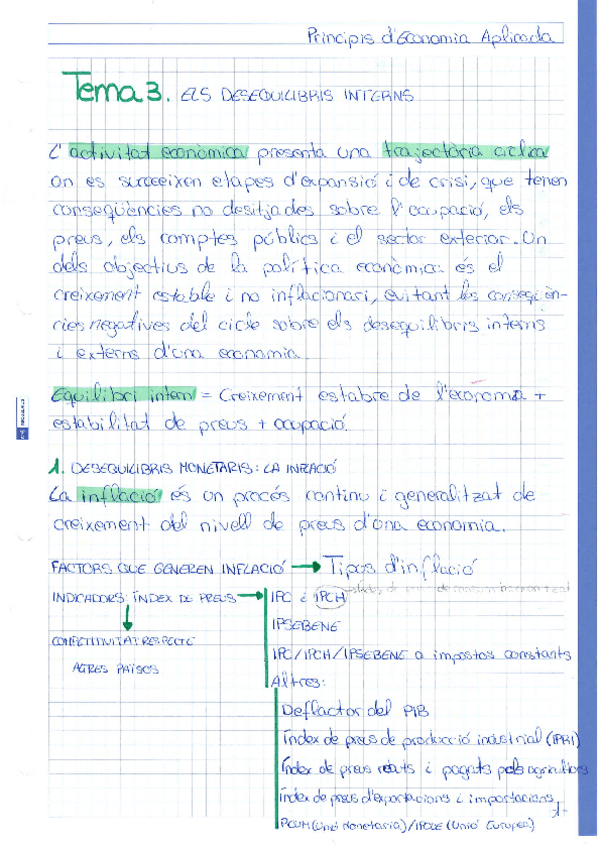 Principis d'Economia Aplicada
Tema 3. ELS DESEQUILIBRIS INTERNS
L'activitat econòmica presenta una trajectòria cíclica
on es succeeixen etapes d'expansió i de crisi, que tenen
conseqüències no desitjades sobre l'ocupació, els
preus, els comptes públics i el sector exterior. Un
dels objectius de la política econòmica: és el
creixement estable i no inflacionari, evitant les conseqüèn-
cies negatives del cicle sobre els desequilibris interns
i externs d'una economia.
Equilibri intern = Creixement estabre de l'economia +
estabilitat de preus + ocupació.
1. DESEQUILIBRIS MONETARIS: LA INFLACIÓ
La inflació és un procés continu i generalitzat de
creixement del nivell de preus d'una economia.
FACTORS QUE GENEREN INFLACIÓ → Tipus d'inflació
INDICADORS: ÍNDEX DE PREUS → IPC i IPCH
IPSEBENE
COMPETITIVITAT RESPECTE
IPC/IPCH/IPSEBENE a impostos constants
ALTRES PAÏSOS
Altres:
Deflactor del PIB
Índex de preus de producció industrial (IPRI)
Índex de preus rebuts i pagats pels agricultors
Índex de preus d'exportacions i importacions
IPCUM (Unió Monetaria) / IPCUE (Unió Europea)